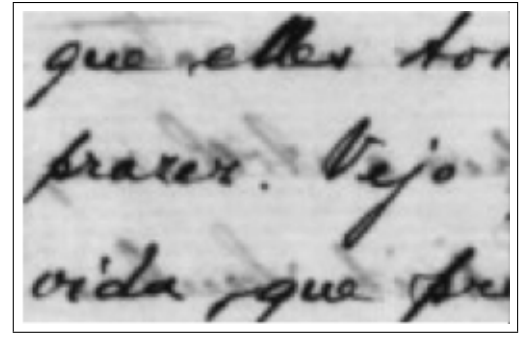 que elles tom
prazer. Vejo
vida que pre